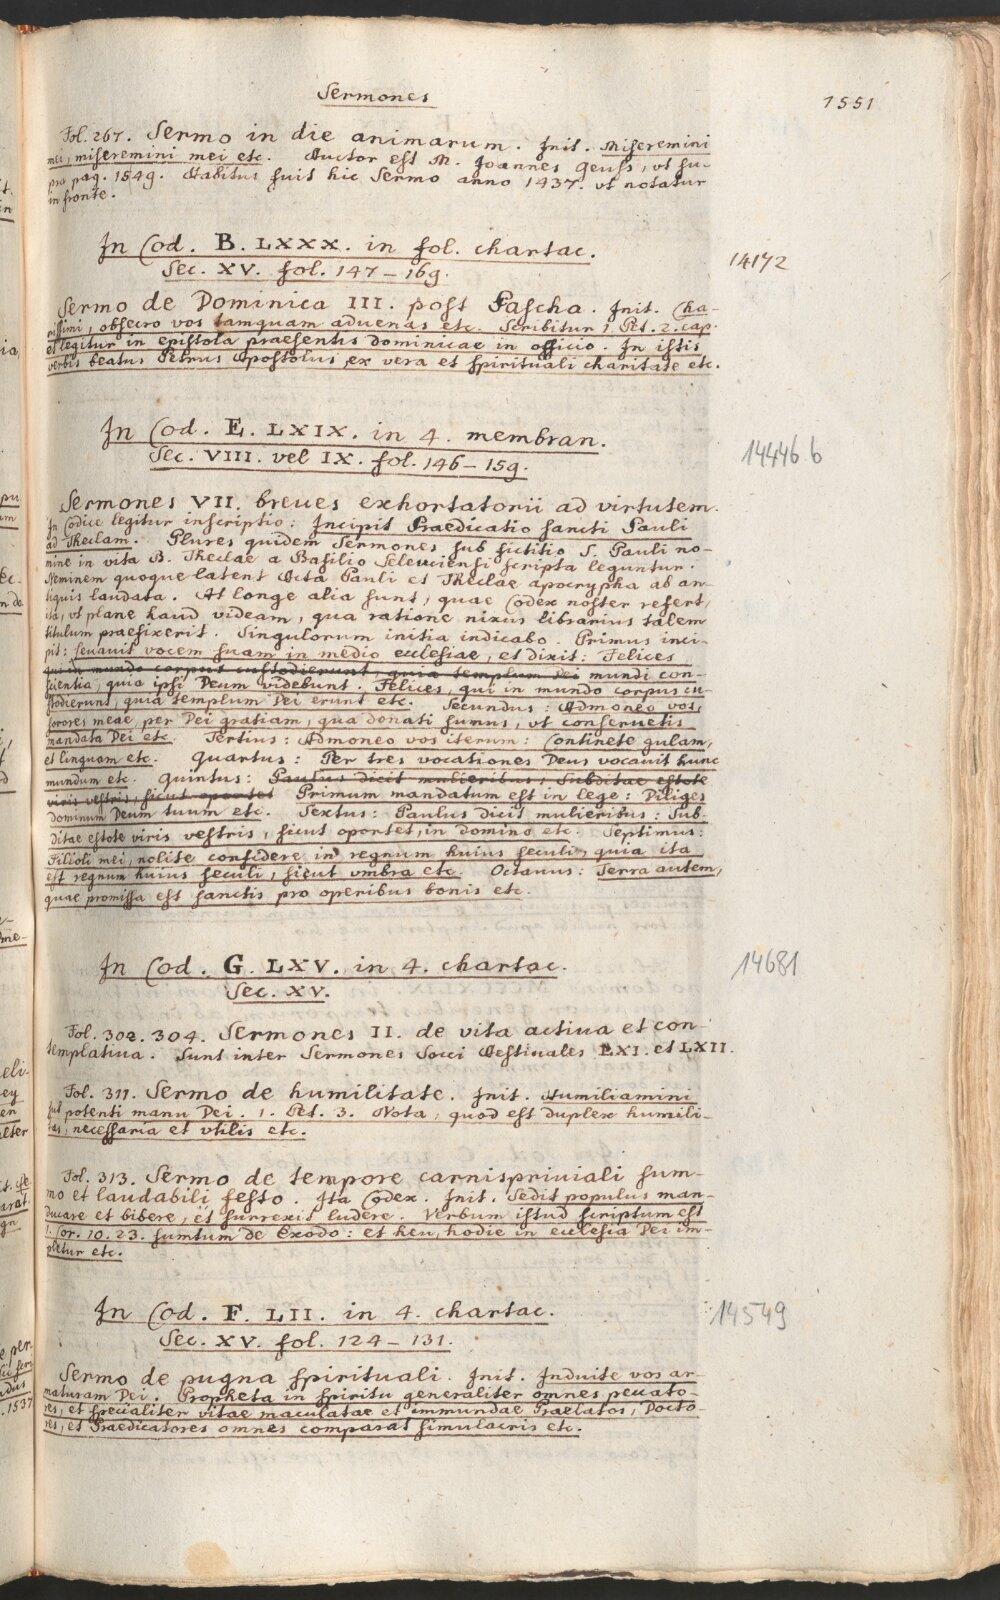 Sermones
1551
Fol. 267. Sermo in die animarum. Init. Miseremini
mei, miseremini mei etc. Auctor est M. Joannes Geuss, vt su-
pra pag. 1549. Habitus fuit hic Sermo anno 1437. vt notatur
in fronte.
In Cod. B. LXXX. in fol. chartac.
14172
Sec. XV. fol. 147 – 169.
Sermo de Dominica III. post Pascha. Init. Cha-
rissimi, obsecro vos tamquam aduenas etc. Scribitur 1. Pet. 2. cap.
et legitur in epistola praesentis dominicae in officio. In istis
verbis beatus Petrus Apostolus ex vera et spirituali charitate etc.
In Cod. E. LXIX. in 4. membran.
14446.b
Sec. VIII. vel IX. fol. 146 – 159.
Sermones VII. breues exhortatorii ad virtutem.
In Codice legitur inscriptio: Incipit Praedicatio sancti Pauli
ad Theclam. Plures quidem Sermones sub fictitio S. Pauli no-
mine in vita B. Theclae a Basilio Seleuciensi scripta leguntur.
Neminem quoque latent Acta Pauli et Theclae apocrypha ab an-
tiquis laudata. At longe alia sunt, quae Codex noster refert,
ita, vt plane haud videam, qua ratione nixus librarius talem
titulum praefixerit. Singulorum initia indicabo. Primus inci-
pit: leuauit vocem suam in medio ecclesiae, et dixit: Felices
qui in mundo corpus custodierunt, quia templum Dei mundi con-
scientia, quia ipsi Deum videbunt. Felices, qui in mundo corpus cu-
stodierunt, quia templum Dei erunt etc. Secundus: Admoneo vos,
sorores meae, per Dei gratiam, qua donati sumus, vt conseruetis
mandata Dei etc. Tertius: Admoneo vos iterum: Continete gulam,
et linguam etc. Quartus: Per tres vocationes Deus vocauit hunc
mundum etc. Quintus: Paulus dicit mulieribus: Subditae estote
viris vestris, sicut oportet Primum mandatum est in lege: Diliges
dominum Deum tuum etc. Sextus: Paulus dicit mulieribus: Sub-
ditae estote viris vestris, sicut oportet, in domino etc. Septimus:
Filioli mei, nolite confidere in regnum huius seculi, quia ita
est regnum huius seculi, sicut vmbra etc. Octauus: Terra autem,
quae promissa est sanctis pro operibus bonis etc.
In Cod. G. LXV. in 4. chartac.
14681
Sec. XV.
Fol. 302. 304. Sermones II. de vita actiua et con-
templatiua. Sunt inter Sermones Socci Aestiuales LXI. et LXII.
Fol. 311. Sermo de humilitate. Init. Humiliamini
sub potenti manu Dei. 1. Pet. 3. Nota, quod est duplex humili-
tas, necessaria et vtilis etc.
Fol. 313. Sermo de tempore carnispriuiali sum-
mo et laudabili festo. Ita Codex. Init. Sedit populus man-
ducare et bibere, et surrexit ludere. Verbum istud scriptum est
1. Cor. 10. 23. sumtum de Exodo: et heu, hodie in ecclesia Dei im-
pletur etc.
In Cod. F. LII. in 4. chartac.
14549
Sec. XV. fol. 124 – 131.
Sermo de pugna spirituali. Init. Induite vos ar-
maturam Dei. Propheta in spiritu generaliter omnes peccato-
res, et specialiter vitae maculatae et immundae Praelatos, Docto-
res, et Praedicatores omnes comparat simulacris etc.